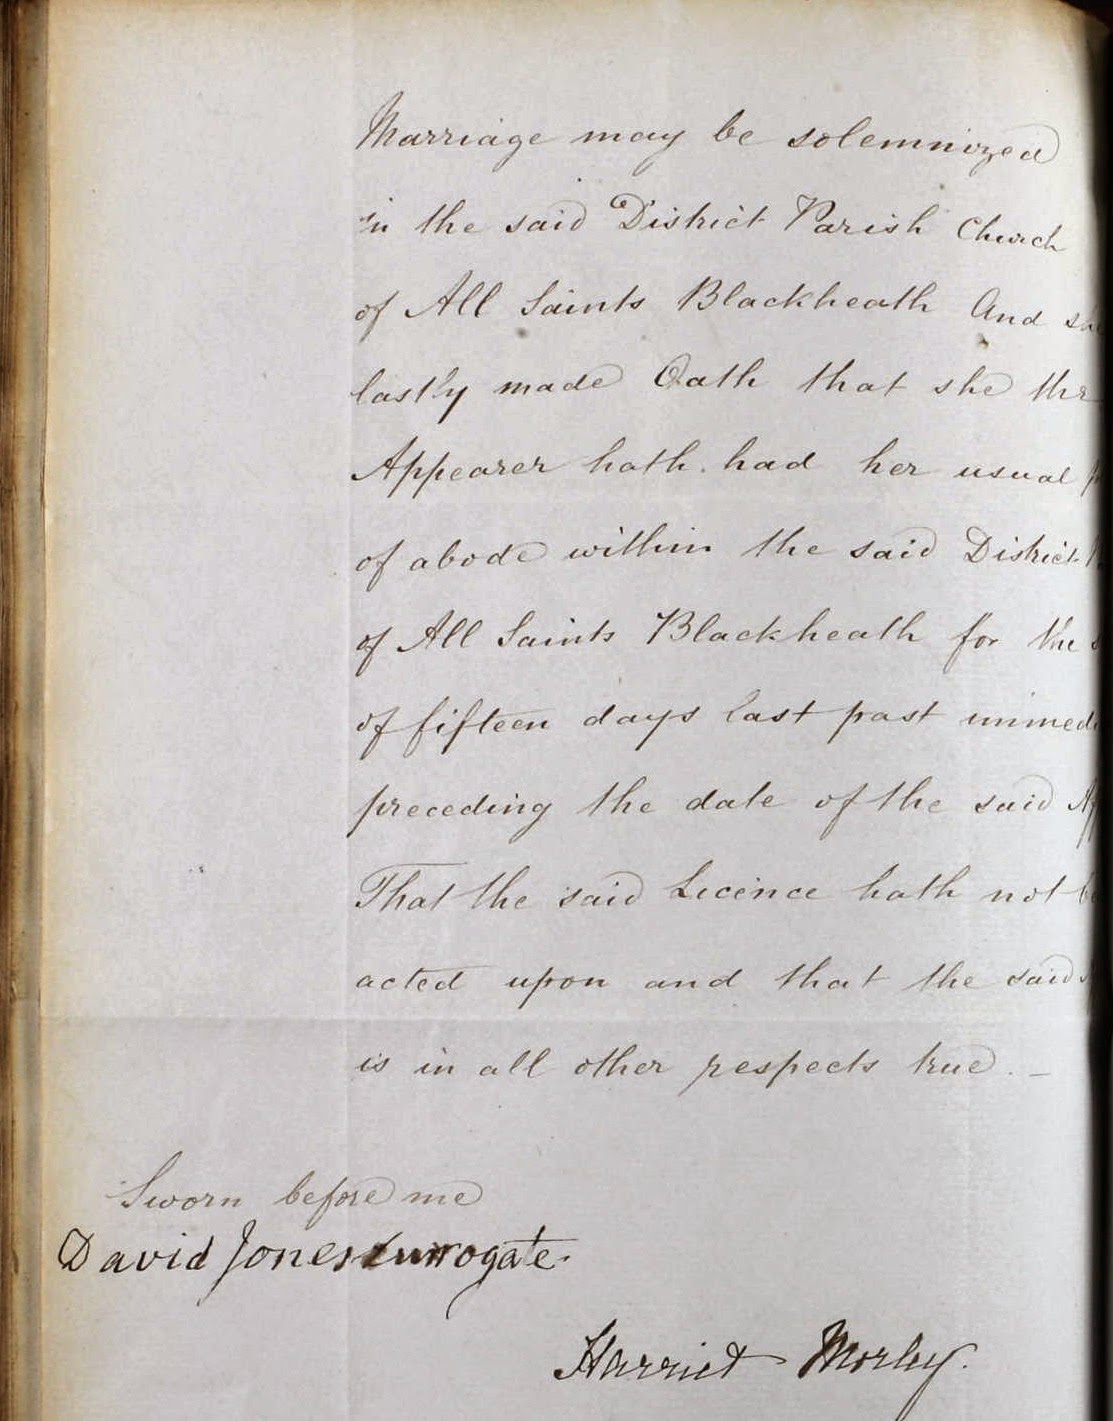 Marriage may be solemnized
in the said District Parish Church
of All Saints Blackheath And
lastly made Oath that she the
Appearer hath had her usual
of abode within the said District
of All Saints Blackheath for the
of fifteen days last past immed
preceding the date of the said
That the said Licence hath not
acted upon and that the said
is in all other respects true. -
Sworn before me
David Jones Surrogate.
Harriet Morley.